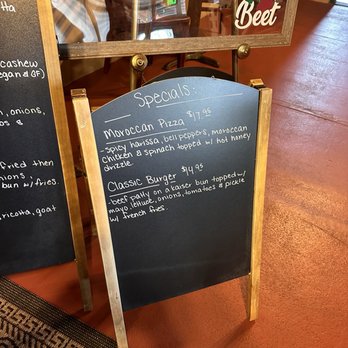 cashew
egan & GF)
onions,
Fried then
onions
bun w/ fries.
ricotta, goat
Beet
Specials:
Moroccan Pizza $17.95
-spicy harissa, bell peppers, moroccan
chicken & spinach topped w/ hot honey
drizzle.
Classic Burger $14.95
-beef patty on a kaiser bun topped w/
mayo, lettuce, onions, tomatoes & pickle
w/ french fries.